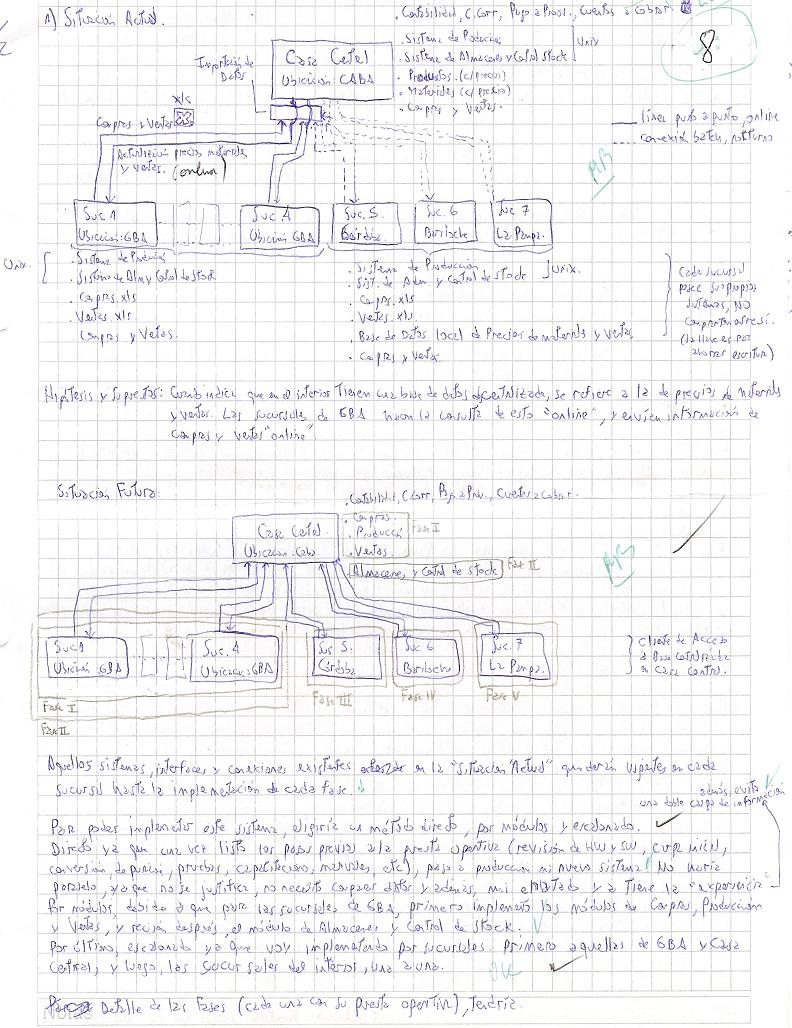 1) Situación Actual.
. Contabilidad, C. Corr, Pago a Prov., Cuentas a Cobrar
8
. Sistema de Producción
. Sistema de Almacenes y Cotrol Stock
Unix
. Productos. (c/precio)
. Materiales (c/precio)
. Compras y Ventas
Casa Cetal
Ubicación: CABA
Importación de
Datos
xls
Compras y Ventas
línea punto a punto, online
conexión batch, notturno
MB
Actualización precios materiales
y ventas. (online)
Suc 1
Ubicación: GBA
Suc 4
Ubicación GBA
Suc 5.
Córdoba
Suc. 6
Bariloche
Suc 7
La Pampa.
Unix.
. Sistema de Producción
. Sistema de Alm y Cotrol de Stock
. Compras .xls
. Ventas .xls
Compras y Ventas.
. Sistema de Producción
. Sist. de Alm. y Control de stock
Unix.
. Compras .xls
. Ventas .xls
. Base de Datos local de Precios de materials y Ventas
. Compras y Ventas.
Cada sucursal
posee sus propios
sistemas, NO
comparten entre sí.
(la llave es por
ahorrar escritura)
Hipótesis y Supuestos: Cuando indica que en el interior tienen una base de datos descentralizada, se refiere a la de precios de materials
y ventas. Las sucursales de GBA hacen la consulta de esto "online", y envían información de
compras y ventas "online".
Situación Futura:
. Contabilidad, C. Corr, Pago a Prov., Cuetas a Cobrar.
. Compras.
. Producción
. Ventas.
Fase I
Almacenes, y Cotrol de Stock
Fase II
Casa Cetral.
Ubicación: Caba
MB
Suc 1
Ubicación: GBA
Suc. 4
Ubicacion: GBA
Suc 5.
Córdoba
Suc 6
Bariloche
Suc. 7
La Pampa.
Cliente de Acceso
a Base Centralizada
en Casa Central.
Fase I
Fase II
Fase III
Fase IV
Fase V
Aquellos sistemas, interfaces y conexiones existentes en la "Situacion Actual" quedarán vigentes en cada
sucursal hasta la implementación de cada Fase.
además, evito
una doble carga de información
Para poder implementar este sistema, eligiría un método directo, por módulos y escalonado.
Directo ya que una vez listo los pasos previos a la puesta operativa (revisión de HW y SW,
conversión de, pruebas, capacitación, manuales, etc), paso a producción mi nuevo sistema. No haría
paralelo, ya que no se justifica, no necesito comparar datos y además, mi empleado ya tiene la "experiencia"
Por módulos, debido a que para las sucursales de GBA, primero implemento los módulos de Compras, Producción
y Ventas, y recién después, el módulo de Almacenes y Control de Stock.
Por último, escalonado ya que voy implementando por sucursales. Primero aquellas de GBA y Casa
Central, y luego, las sucursales del interior, una a una.
OK
Detalle de las Fases (cada una con su puesta operativa), tendría.
Notas